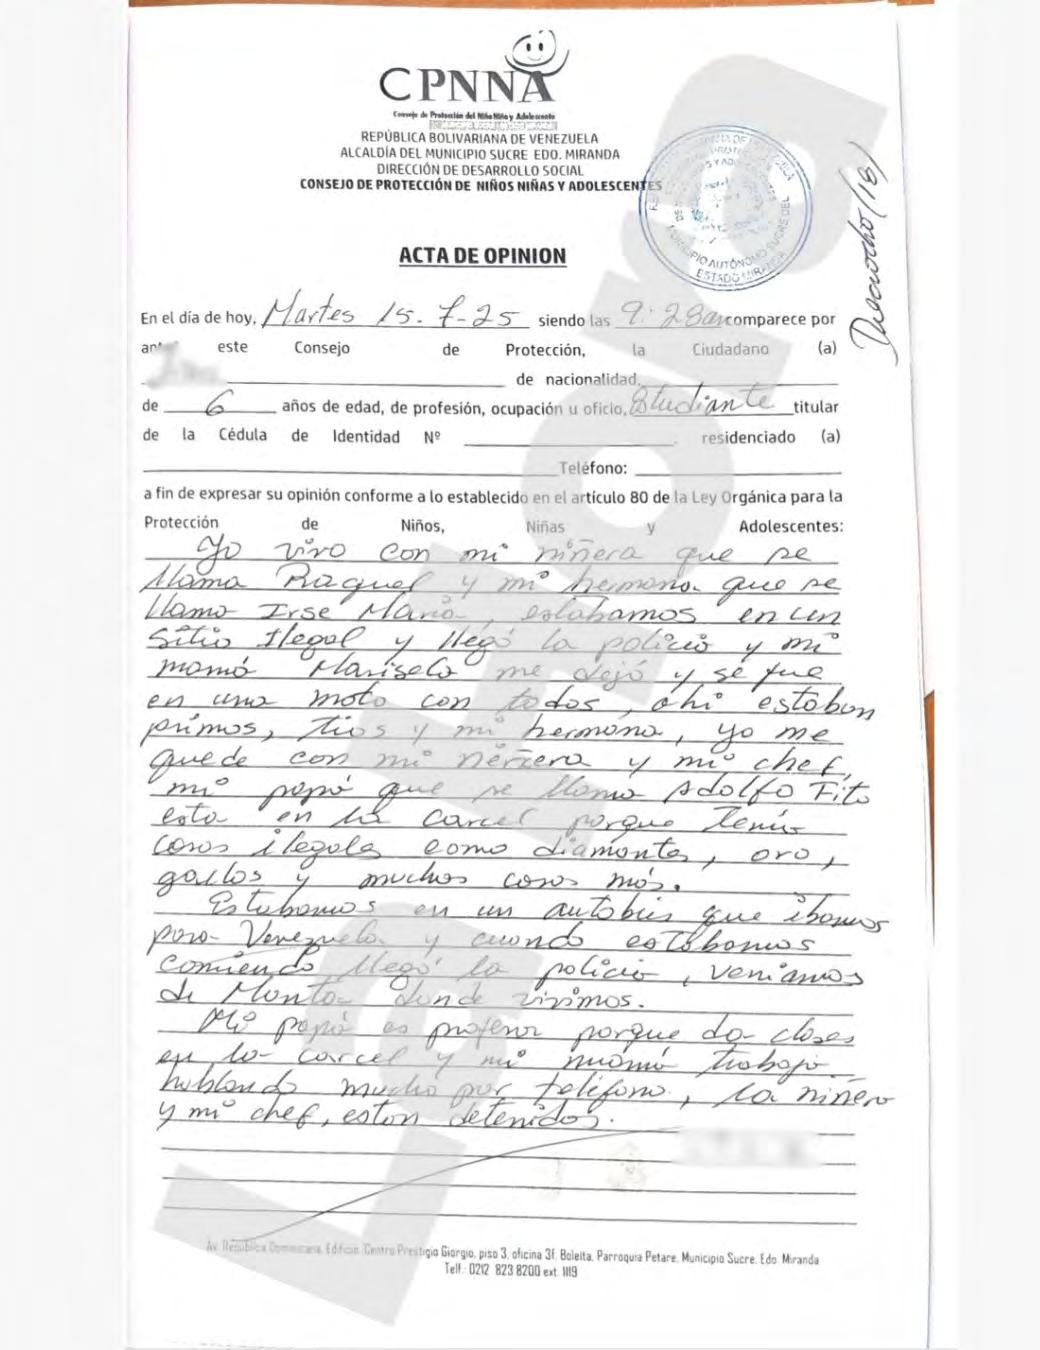 CPNNA
Consejo de Protección del Niño Niña y Adolescente
REPÚBLICA BOLIVARIANA DE VENEZUELA
ALCALDÍA DEL MUNICIPIO SUCRE EDO. MIRANDA
DIRECCIÓN DE DESARROLLO SOCIAL
CONSEJO DE PROTECCIÓN DE NIÑOS NIÑAS Y ADOLESCENTES
MUNICIPIO AUTÓNOMO SUCRE DEL
ESTADO MIRANDA
Dieciocho (18)
ACTA DE OPINION
En el día de hoy, Martes 15-7-25 siendo las 9:28am comparece por
ante este Consejo de Protección, la Ciudadano (a)
de nacionalidad,
de 6 años de edad, de profesión, ocupación u oficio, Estudiante titular
de la Cédula de Identidad Nº residenciado (a)
Teléfono:
a fin de expresar su opinión conforme a lo establecido en el artículo 80 de la Ley Orgánica para la
Protección de Niños, Niñas y Adolescentes:
Yo vivo con mi niñera que se
llama Raquel y mi hermana que se
llama Irse Maria, estabamos en un
sitio Ilegal y llegó la policia y mi
mamá Marisela me dejó y se fue
en una moto con todos, ahi estaban
primos, tios y mi hermana, yo me
quede con mi niñera y mi chef,
mi papá que se llama Adolfo Fito
esta en la carcel porque tenia
cosas ilegales como diamantes, oro,
gallos y muchas cosas más.
Estabamos en un autobús que ibamos
para Venezuela y cuando estabamos
comiendo llegó la policia, veniamos
de Manta donde vivimos.
Mi papá es profesor porque da clases
en la carcel y mi mamá trabaja
hablando mucho por teléfono, la niñera
y mi chef, estan detenidos.
La Hora
Av. República Dominicana, Edificio Centro Prestigio Giorgio, piso 3, oficina 3f. Boleita, Parroquia Petare, Municipio Sucre, Edo. Miranda
Telf.: 0212 823 8200 ext. 1119